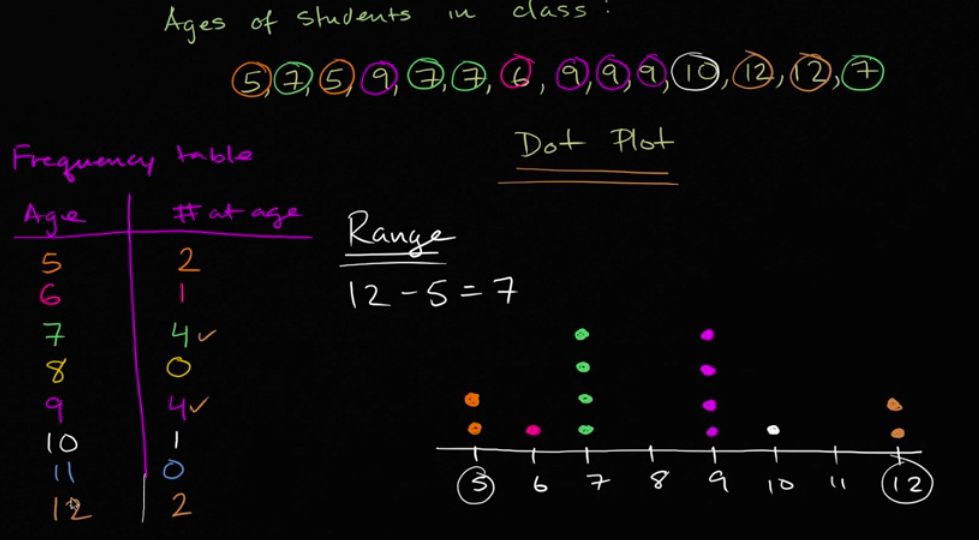 Ages of students in class:
5, 7, 5, 9, 7, 7, 6, 9, 9, 9, 10, 12, 12, 7
Dot Plot
Frequency table
Age # at age
5 2
6 1
7 4 ✓
8 0
9 4 ✓
10 1
11 0
12 2
Range
12 - 5 = 7
5 6 7 8 9 10 11 12